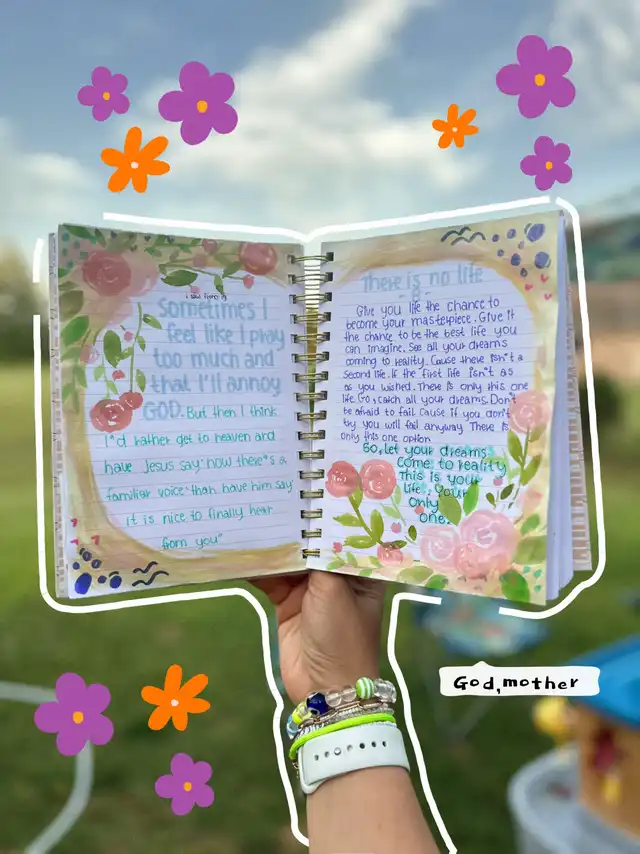 Sometimes I
feel like I pray
too much and
that I'll annoy
GOD. But then I think
I"d rather get to heaven and
have Jesus say "now there"s a
familiar voice" than have him say
"it is nice to finally hear
from you"
There is no life
Give you life the chance to
become your masterpiece. Give it
the chance to be the best life you
can imagine. See all your dreams
coming to reality. Cause there isn't a
second life. If the first life isn't as
as you wished. There is only this one
life. Go, catch all your dreams. Don't
be afraid to fail. Cause if you don't
try you will fail anyway. There is
only this one option
Go, let your dreams
come to reality
This is your
life. Your
only
one.
God,mother